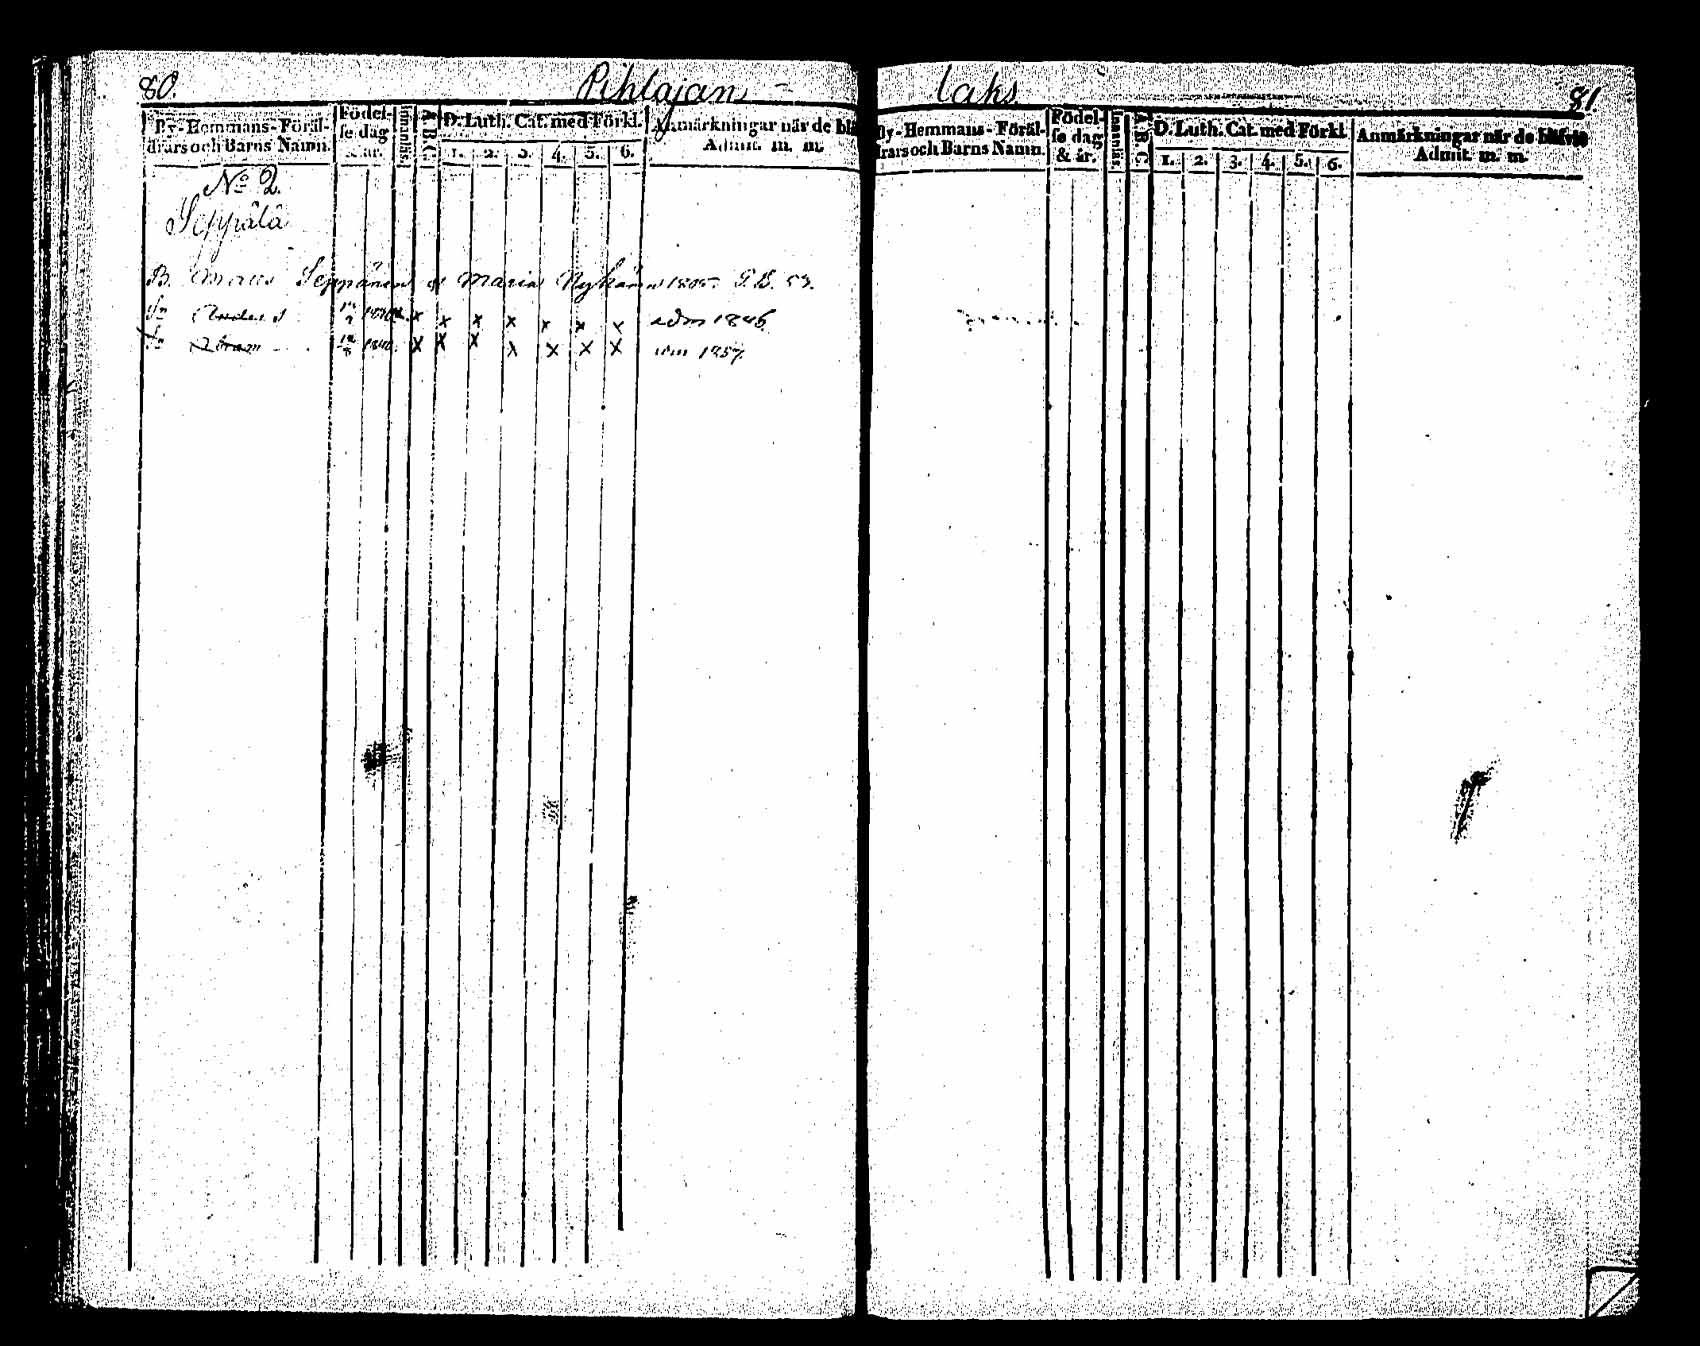 80.
Pihlajan-
By-Hemmans-Föräl-
drars och Barns Namn.
Födel-
se dag
& år.
Innanläs.
A.B.C.
D. Luth. Cat. med Förkl.
1. 2. 3. 4. 5. 6.
Anmärkningar när de bli
Admit. m. m.
No 2.
Seppälä
B. Seppänen Maria 1805. S.B. 53.
Sn x x x x x x x adm 1846.
Sn Abram x x x x x x x adm 1857.
laks
81
By-Hemmans-Föräl-
drars och Barns Namn.
Födel-
se dag
& år.
Innanläs.
A.B.C.
D. Luth. Cat. med Förkl.
1. 2. 3. 4. 5. 6.
Anmärkningar när de blifvit
Admit. m. m.